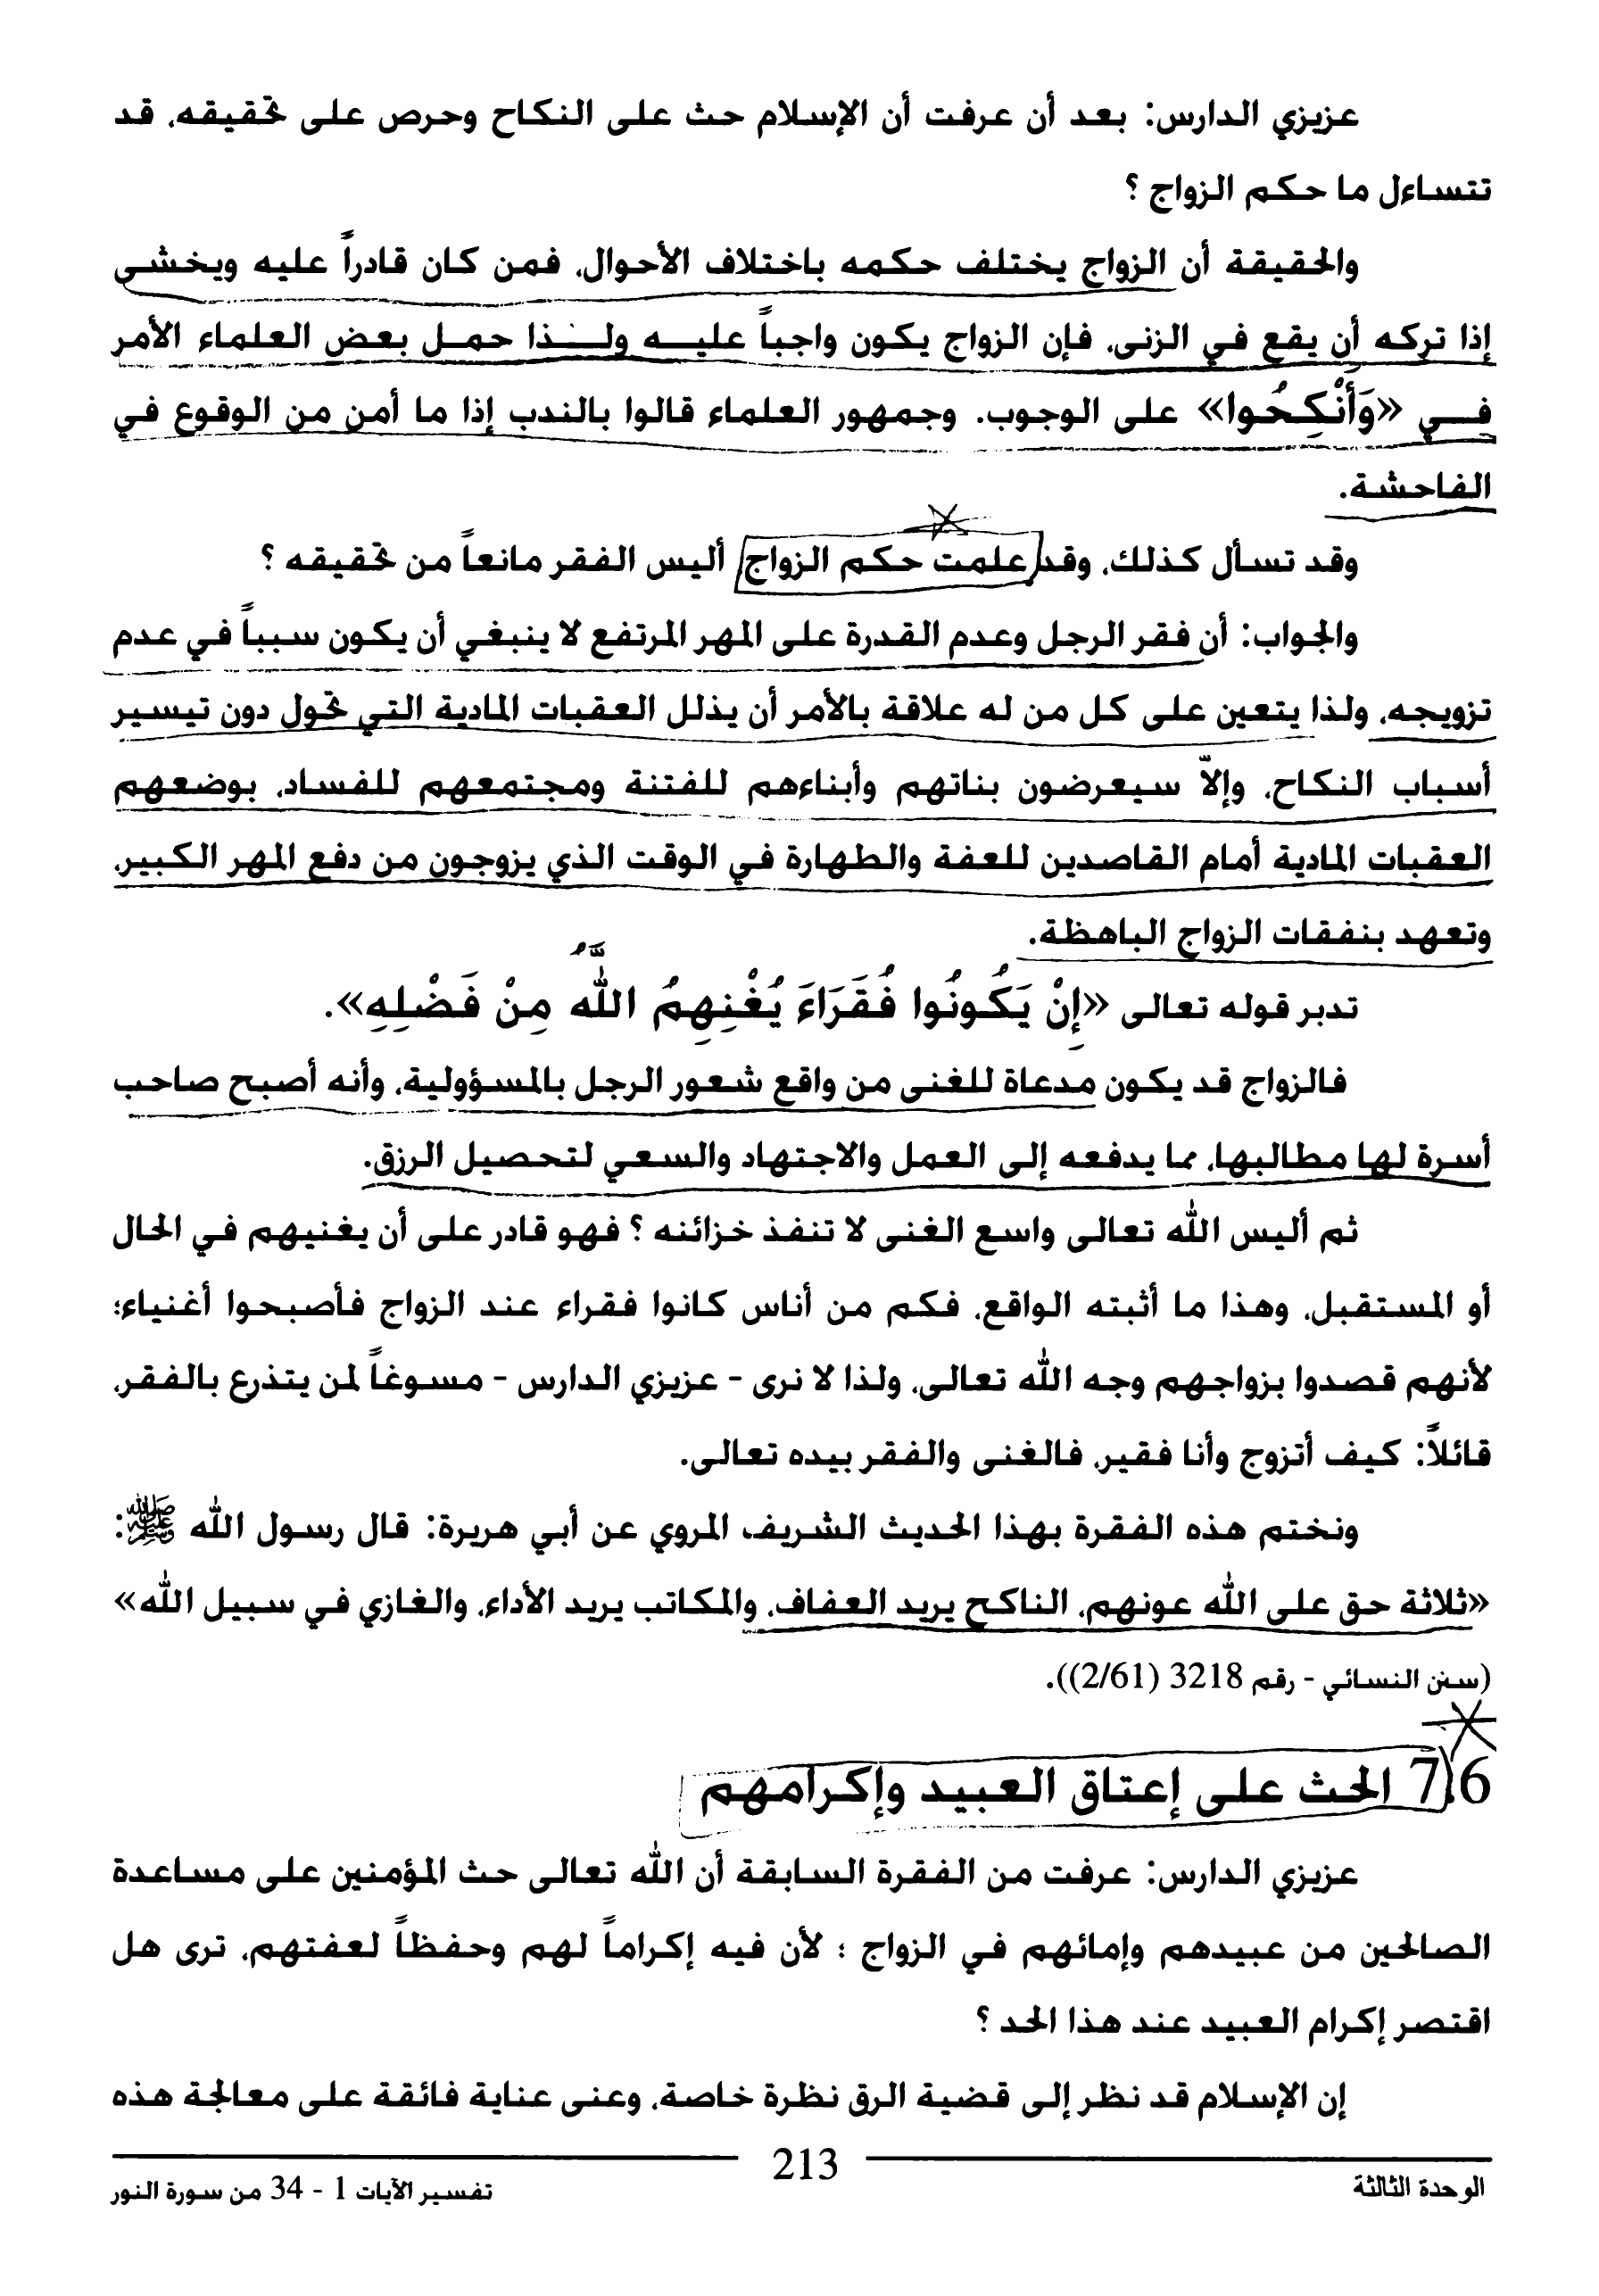 عزيزي الدارس: بعد أن عرفت أن الإسلام حث على النكاح وحرص على تحقيقه، قد
تتساءل ما حكم الزواج ؟
والحقيقة أن الزواج يختلف حكمه باختلاف الأحوال، فمن كان قادراً عليه ويخشى
إذا تركه أن يقع في الزنى، فإن الزواج يكون واجباً عليه ولذا حمل بعض العلماء الأمر
في «وَأَنْكِحُوا» على الوجوب. وجمهور العلماء قالوا بالندب إذا ما أمن من الوقوع في
الفاحشة.
وقد تسأل كذلك، وقد علمت حكم الزواج أليس الفقر مانعاً من تحقيقه ؟
والجواب: أن فقر الرجل وعدم القدرة على المهر المرتفع لا ينبغي أن يكون سبباً في عدم
تزويجه، ولذا يتعين على كل من له علاقة بالأمر أن يذلل العقبات المادية التي تحول دون تيسير
أسباب النكاح، وإلاّ سيعرضون بناتهم وأبناءهم للفتنة ومجتمعهم للفساد، بوضعهم
العقبات المادية أمام القاصدين للعفة والطهارة في الوقت الذي يزوجون من دفع المهر الكبير،
وتعهد بنفقات الزواج الباهظة.
تدبر قوله تعالى «إِنْ يَكُونُوا فُقَرَاءَ يُغْنِهِمُ اللَّهُ مِنْ فَضْلِهِ».
فالزواج قد يكون مدعاة للغنى من واقع شعور الرجل بالمسؤولية، وأنه أصبح صاحب
أسرة لها مطالبها، مما يدفعه إلى العمل والاجتهاد والسعي لتحصيل الرزق.
ثم أليس الله تعالى واسع الغنى لا تنفذ خزائنه ؟ فهو قادر على أن يغنيهم في الحال
أو المستقبل، وهذا ما أثبته الواقع، فكم من أناس كانوا فقراء عند الزواج فأصبحوا أغنياء؛
لأنهم قصدوا بزواجهم وجه الله تعالى، ولذا لا نرى - عزيزي الدارس - مسوغاً لمن يتذرع بالفقر،
قائلاً: كيف أتزوج وأنا فقير، فالغنى والفقر بيده تعالى.
ونختم هذه الفقرة بهذا الحديث الشريف المروي عن أبي هريرة: قال رسول الله ﷺ:
«ثلاثة حق على الله عونهم، الناكح يريد العفاف، والمكاتب يريد الأداء، والغازي في سبيل الله»
(سنن النسائي - رقم 3218 (2/61)).
7.6 الحث على إعتاق العبيد وإكرامهم
عزيزي الدارس: عرفت من الفقرة السابقة أن الله تعالى حث المؤمنين على مساعدة
الصالحين من عبيدهم وإمائهم في الزواج ؛ لأن فيه إكراماً لهم وحفظاً لعفتهم، ترى هل
اقتصر إكرام العبيد عند هذا الحد ؟
إن الإسلام قد نظر إلى قضية الرق نظرة خاصة، وعنى عناية فائقة على معالجة هذه
213
الوحدة الثالثة
تفسير الآيات 1 - 34 من سورة النور